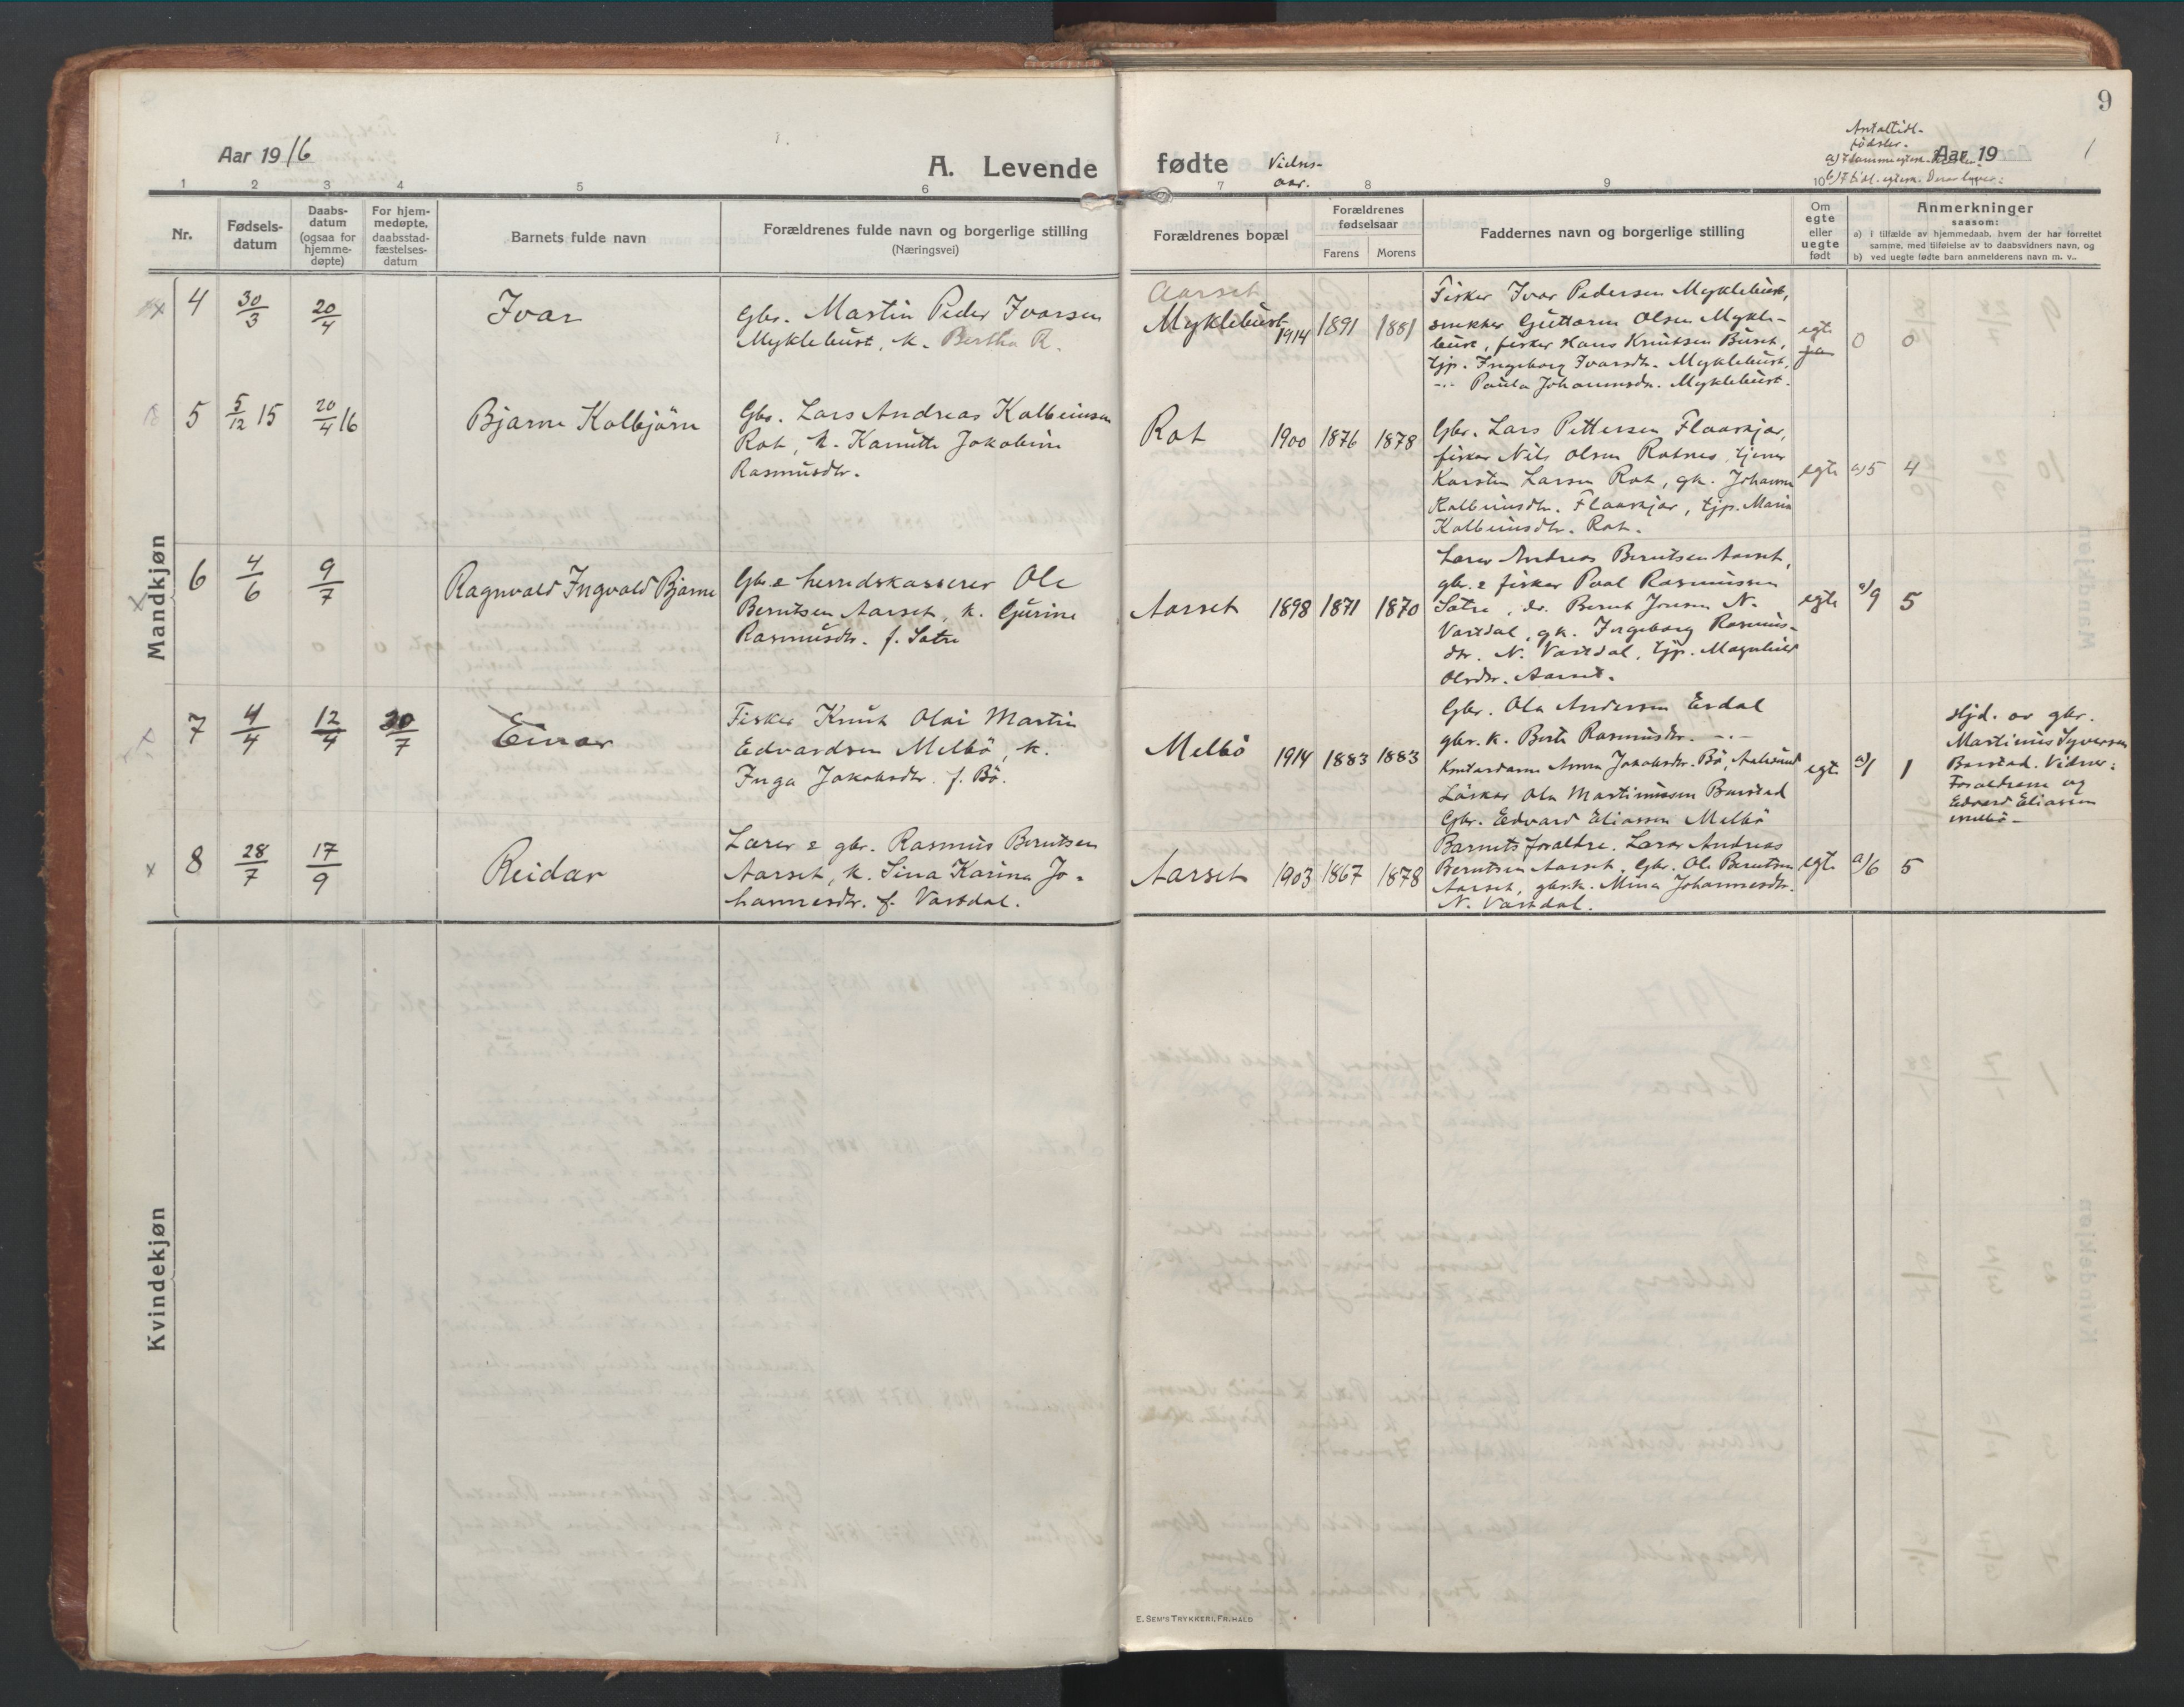 9
Aar 1916
A. Levende
fødte
Vielses-
aar.
Antal tidl.
fødsler.
Aar 19
1
1 2 3 4 5 6 7 8 9 10
Nr.
Fødsels-
datum
Daabs-
datum
(ogsaa for
hjemme-
døpte)
For hjem-
medøpte,
daabsstad-
fæstelses-
datum
Barnets fulde navn
Forældrenes fulde navn og borgerlige stilling
(Næringsvei)
Forældrenes bopæl
Forældrenes
fødselsaar
Farens Morens
Faddernes navn og borgerlige stilling
Om
egte
eller
uegte
født
Anmerkninger
saasom:
a) i tilfælde av hjemmedaab, hvem der har forrettet
samme, med tilføielse av to daabsvidners navn, og
b) ved uegte fødte barn anmelderens navn m. v..
Mandkjøn
4 30/3 20/4 Ivar
Gbr. Martin Peder Ivarsen
Myklebust, k. Bertha R.
Aarset
Myklebust 1914 1891 1881
Fisker Ivar Pedersen Myklebust,
snekker Guttorm Olsen Mykle-
bust, fisker Hans Knutsen Buset,
tjp. Ingeborg Ivarsdtr. Myklebust,
-"- Paula Johannsdtr. Myklebust.
egte
ja
0 0
5 5/12 15 20/4 16 Bjarne Kolbjörn
Gbr. Lars Andreas Kolbeinsen
Rot, k. Kanutte Jakobine
Rasmusdtr.
Rot 1900 1876 1878
Gbr. Lars Pettersen Flaaskjær,
fisker Nils Olsen Rotnes, tjener
Karsten Larsen Rot, gk. Johanna
Kolbeinsdtr. Flaaskjær, tjp. Marie
Kolbeinsdtr. Rot.
egte a) 5 4
6 4/6 9/7 Ragnvald Ingvald Bjarne
Gbr. & herredskasserer Ole
Berntsen Aarset, k. Gurine
Rasmusdtr. f. Sætre
Aarset 1898 1871 1870
Lærer Andreas Berntsen Aarset,
gbr. & fisker Paal Rasmussen
Sætre, do. Bernt Jonsen N.
Vartdal, gk. Ingeborg Rasmus-
dtr. N. Vartdal, tjp. Magnhild
Olsdtr. Aarset.
egte a) 9 5
7 4/4 12/4 30/7 Einar
Fisker Knut Olai Martin
Edvardsen Melbö, k.
Inga Jakobsdtr. f. Bö.
Melbö 1914 1883 1883
Gbr. Ola Andersen Erdal
gbr. k. Berte Rasmusdtr. -"-
Kontordame Anna Jakobsdtr. Bö, Aalesund
Löskar Ola Martinussen Barstad
Gbr. Edvard Eliassen Melbö
egte a) 1 1
Hjd. av gbr.
Martinus Syversen
Barstad. Vidner:
Forældrene og
Edvard Eliassen
Melbö -
8 28/7 17/9 Reidar
Lærer & gbr. Rasmus Berntsen
Aarset, k. Lina Karina Jo-
hannesdtr. f. Vartdal.
Aarset 1903 1867 1878
Barnets forældre. Lærer Andreas
Berntsen Aarset, Gbr. Ole Berntsen
Aarset, gbrk. Mina Johannesdtr.
N. Vartdal.
egte a) 6 5
Kvindekjøn
E. SEM'S TRYKKERI, FR.HALD